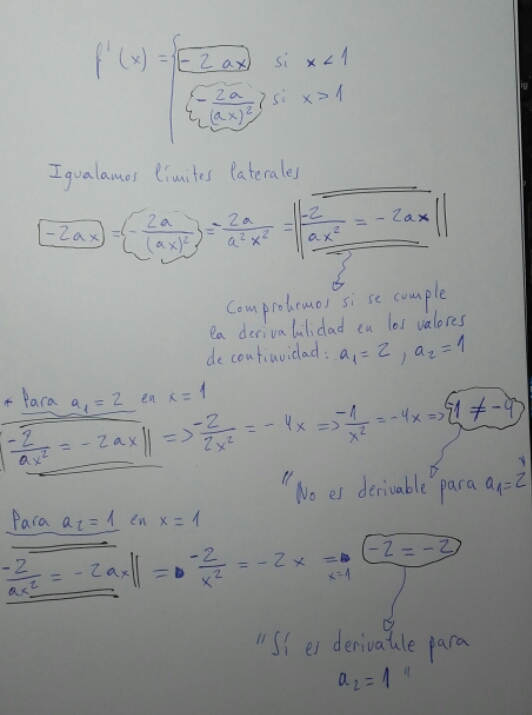 f'(x) = { -2ax si x < 1
-2a/(ax)² si x > 1
Igualamos límites laterales
-2ax = -2a/(ax)² = -2a/a²x² = || -2/ax² = -2ax ||
Comprobemos si se cumple
la derivabilidad en los valores
de continuidad: a₁ = 2, a₂ = 1
* Para a₁ = 2 en x = 1
|| -2/ax² = -2ax || => -2/2x² = -4x => -1/x² = -4x => -1 ≠ -4
"No es derivable para a₁ = 2"
Para a₂ = 1 en x = 1
-2/ax² = -2ax || => -2/x² = -2x => x=1 -2 = -2
"Sí es derivable para
a₂ = 1"